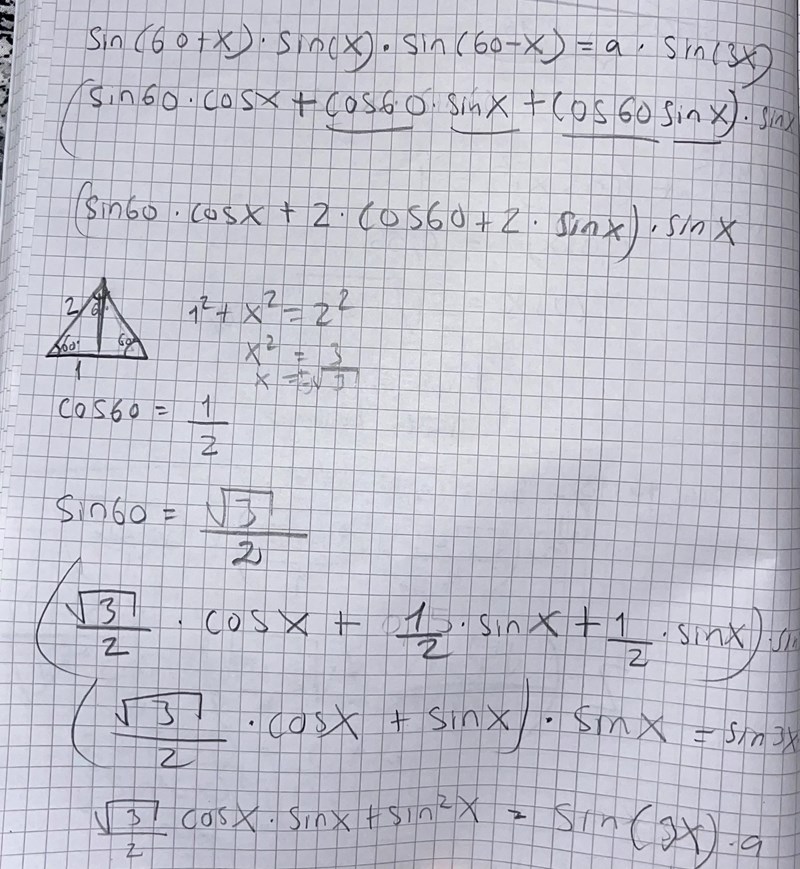 sin(60+x)·sin(x)·sin(60-x)=a·sin(3x)
(sin60·cosx+cos60·sinx+cos60sinx)·sinx
(sin60·cosx+2·cos60+2·sinx)·sinx
2
60 60
1
1²+x²=2²
x²=3
x=±√3
cos60=1/2
sin60=√3/2
(√3/2·cosx+1/2·sinx+1/2·sinx)·sin
(√3/2·cosx+sinx)·sinx=sin3x
√3/2 cosx·sinx+sin²x=sin(3x)·a